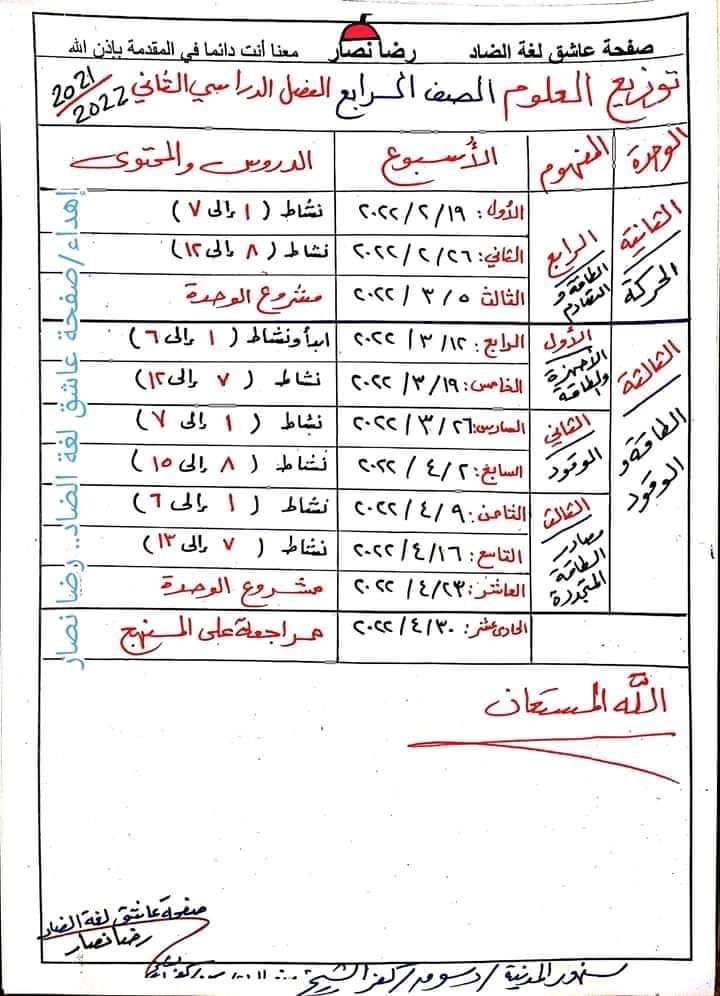 صفحة عاشق لغة الضاد رضا نصار معنا أنت دائما في المقدمة بإذن الله
توزيع العلوم الصف الرابع الفصل الدراسي الثاني 2021/2022
الوحدة المفهوم الأسبوع الدروس والمحتوى
الثانية الحركة
الرابع الطاقة و التصادم
الأول: ٢٠٢٢/٢/١٩ نشاط (١ إلى ٧)
الثاني: ٢٠٢٢/٢/٢٦ نشاط (٨ إلى ١٢)
الثالث ٢٠٢٢/٣/٥ مشروع الوحدة
الثالثة الطاقة و الوقود
الأول الأجهزة والطاقة
الرابع: ٢٠٢٢/٣/١٢ ابدأ ونشاط (١ إلى ٦)
الخامس: ٢٠٢٢/٣/١٩ نشاط (٧ إلى ١٢)
الثاني الوقود
السادس: ٢٠٢٢/٣/٢٦ نشاط (١ إلى ٧)
السابع: ٢٠٢٢/٤/٢ نشاط (٨ إلى ١٥)
الثالث مصادر الطاقة المتجددة
الثامن: ٢٠٢٢/٤/٩ نشاط (١ إلى ٦)
التاسع: ٢٠٢٢/٤/١٦ نشاط (٧ إلى ١٣)
العاشر: ٢٠٢٢/٤/٢٣ مشروع الوحدة
الحادى عشر: ٢٠٢٢/٤/٣٠ مراجعة على المنهج
إهداء/صفحة عاشق لغة الضاد.. رضا نصار
الله المستعان
صفحة عاشق لغة الضاد
رضا نصار
سنهور المدينة / دسوق / كفر الشيخ